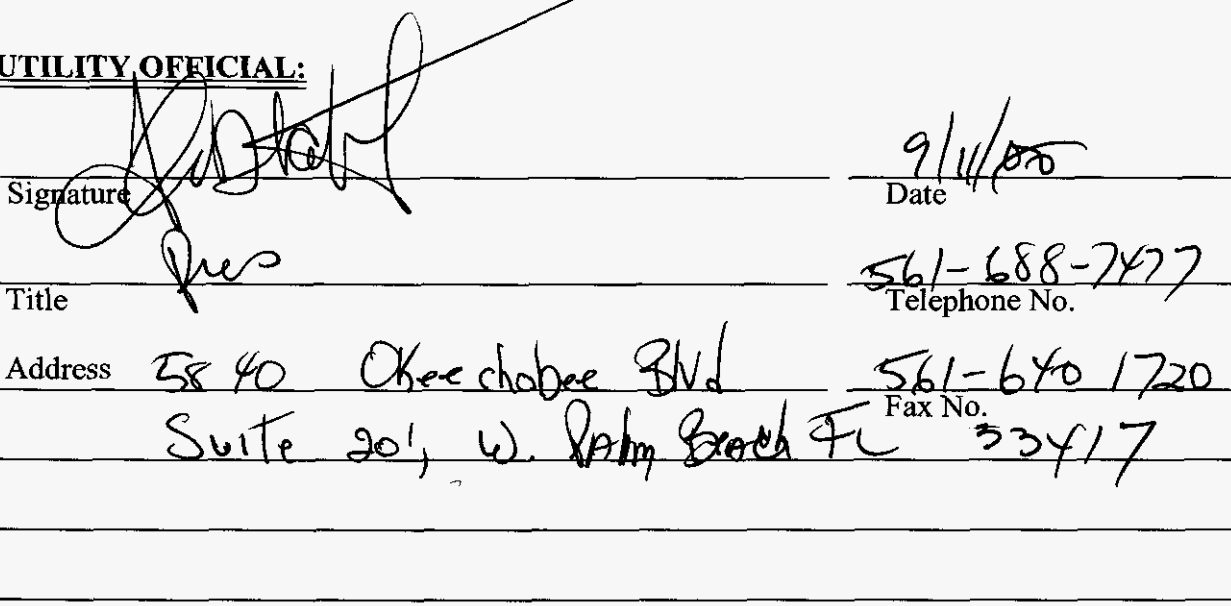 UTILITY OFFICIAL:
9/11/00
Signature Date
Pres 561-688-7477
Title Telephone No.
Address 5840 Okeechobee Blvd 561-640 1720
Fax No.
Suite 201, W. Palm Beach FL 33417